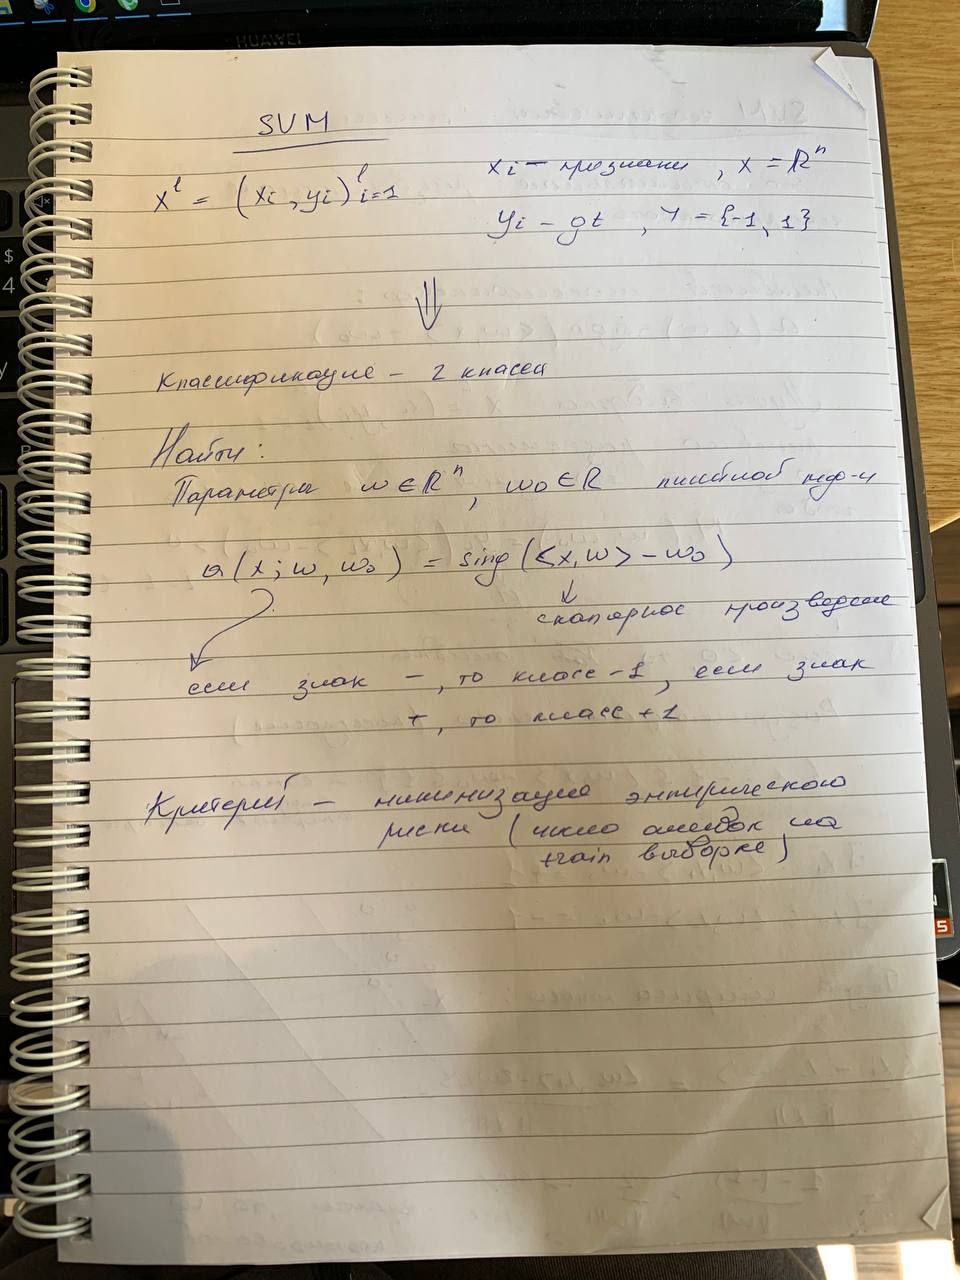 HUAWEI
SVM
x^l = (xi, yi)^l i=1
xi – признаки, x = ℝ^n
yi – gt, Y = {-1, 1}
⇓
Классификация – 2 класса
Найти:
Параметры w ∈ ℝ^n, w0 ∈ ℝ линейной
a(x; w, w0) = sing(<x, w> - w0)
скалярное произведение
если знак -, то класс -1, если знак
+, то класс +1
Критерий – минимизация эмпирического
риска (число ошибок на
train выборке)
$
4
5